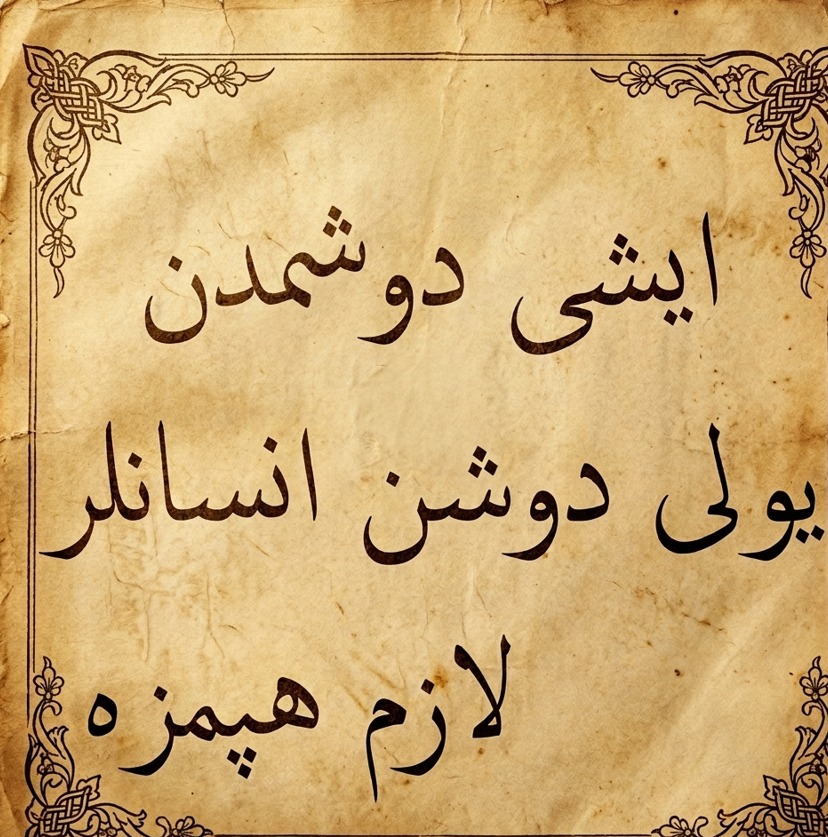 ایشی دوشمدن
یولی دوشن انسانلر
لازم هپمزه